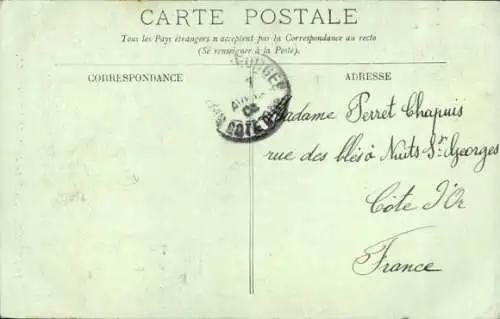 CARTE POSTALE
Tous les Pays étrangers n acceptent pas la Correspondance au recto
(Se renseigner à la Poste).
CORRESPONDANCE
ADRESSE
COTE D'OR
Madame Perret Chapuis
rue des blés à Nuits St. Georges
Côte d'Or
France